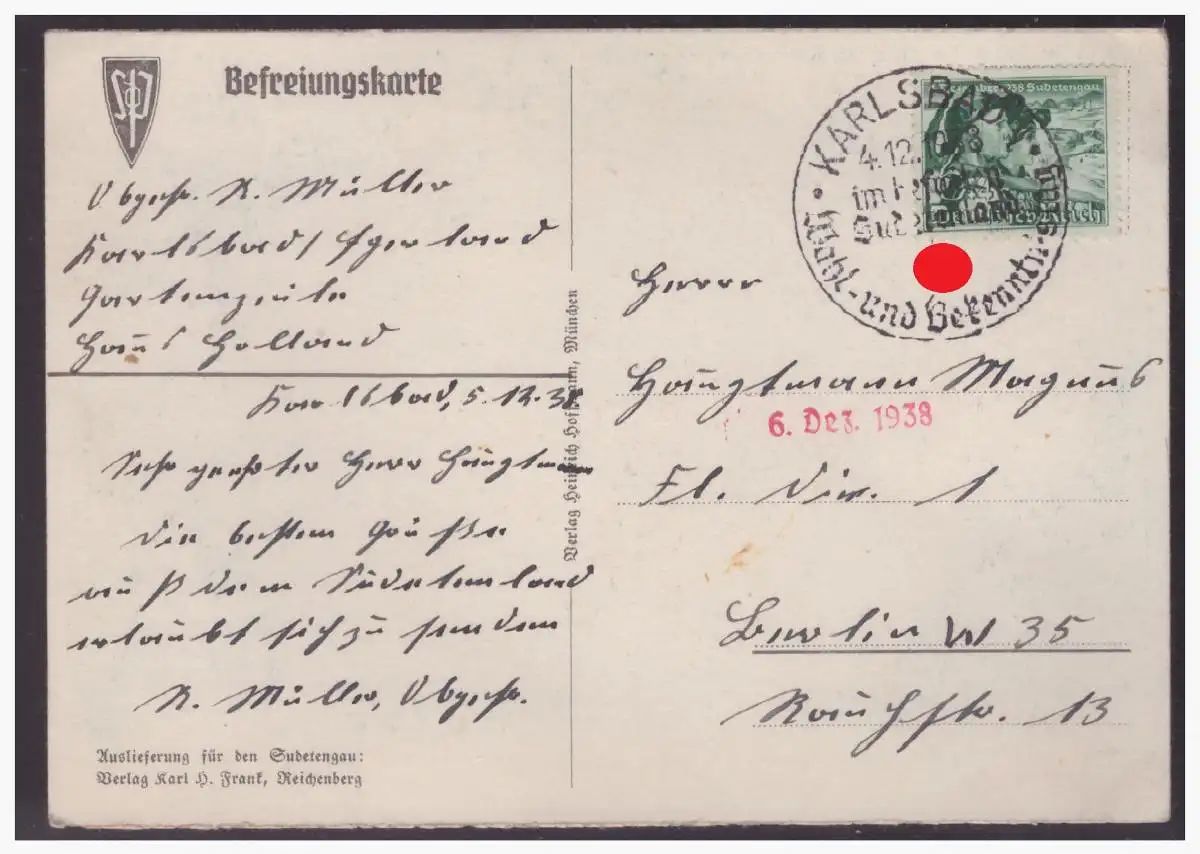 SdP
Befreiungskarte
Obgefr. R. Müller
Karlsbad/Egerland
Gartenzeile
Haus Holland
Karlsbad, 5.12.38
Sehr geehrter Herr Hauptmann
Die besten Grüße
auß dem Sudetenland
erlaubt sich zu senden
R. Müller, Obgefr.
Auslieferung für den Sudetengau:
Verlag Karl H. Frank, Reichenberg
Verlag Heinrich Hoffmann, München
KARLSBAD 1
4.12.1938
im befreiten
Sudetenland
Wahl- und Bekenntnistag
Dezember 1938 Sudetengau
Herrn
Hauptmann Magnus
6. Dez. 1938
Fl. Div. 1
Berlin W 35
Rauchstr. 13